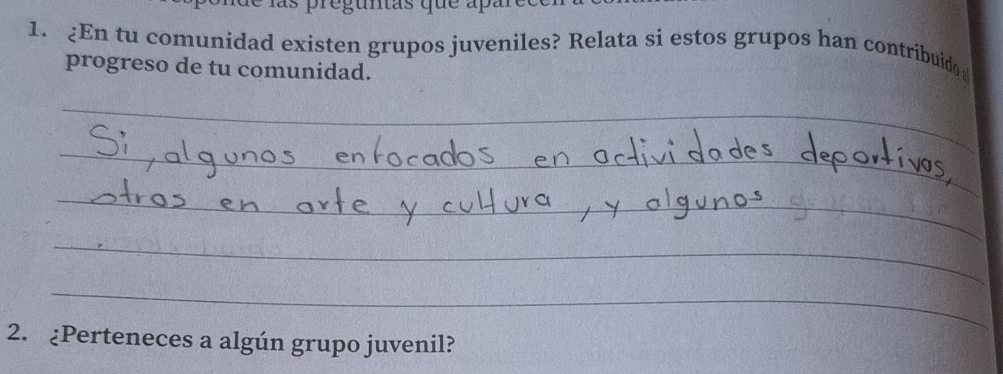 responde las preguntas que aparecen a
1. ¿En tu comunidad existen grupos juveniles? Relata si estos grupos han contribuido al
progreso de tu comunidad.
Si, algunos enfocados en actividades deportivas,
otros en arte y cultura, y algunos
2. ¿Perteneces a algún grupo juvenil?